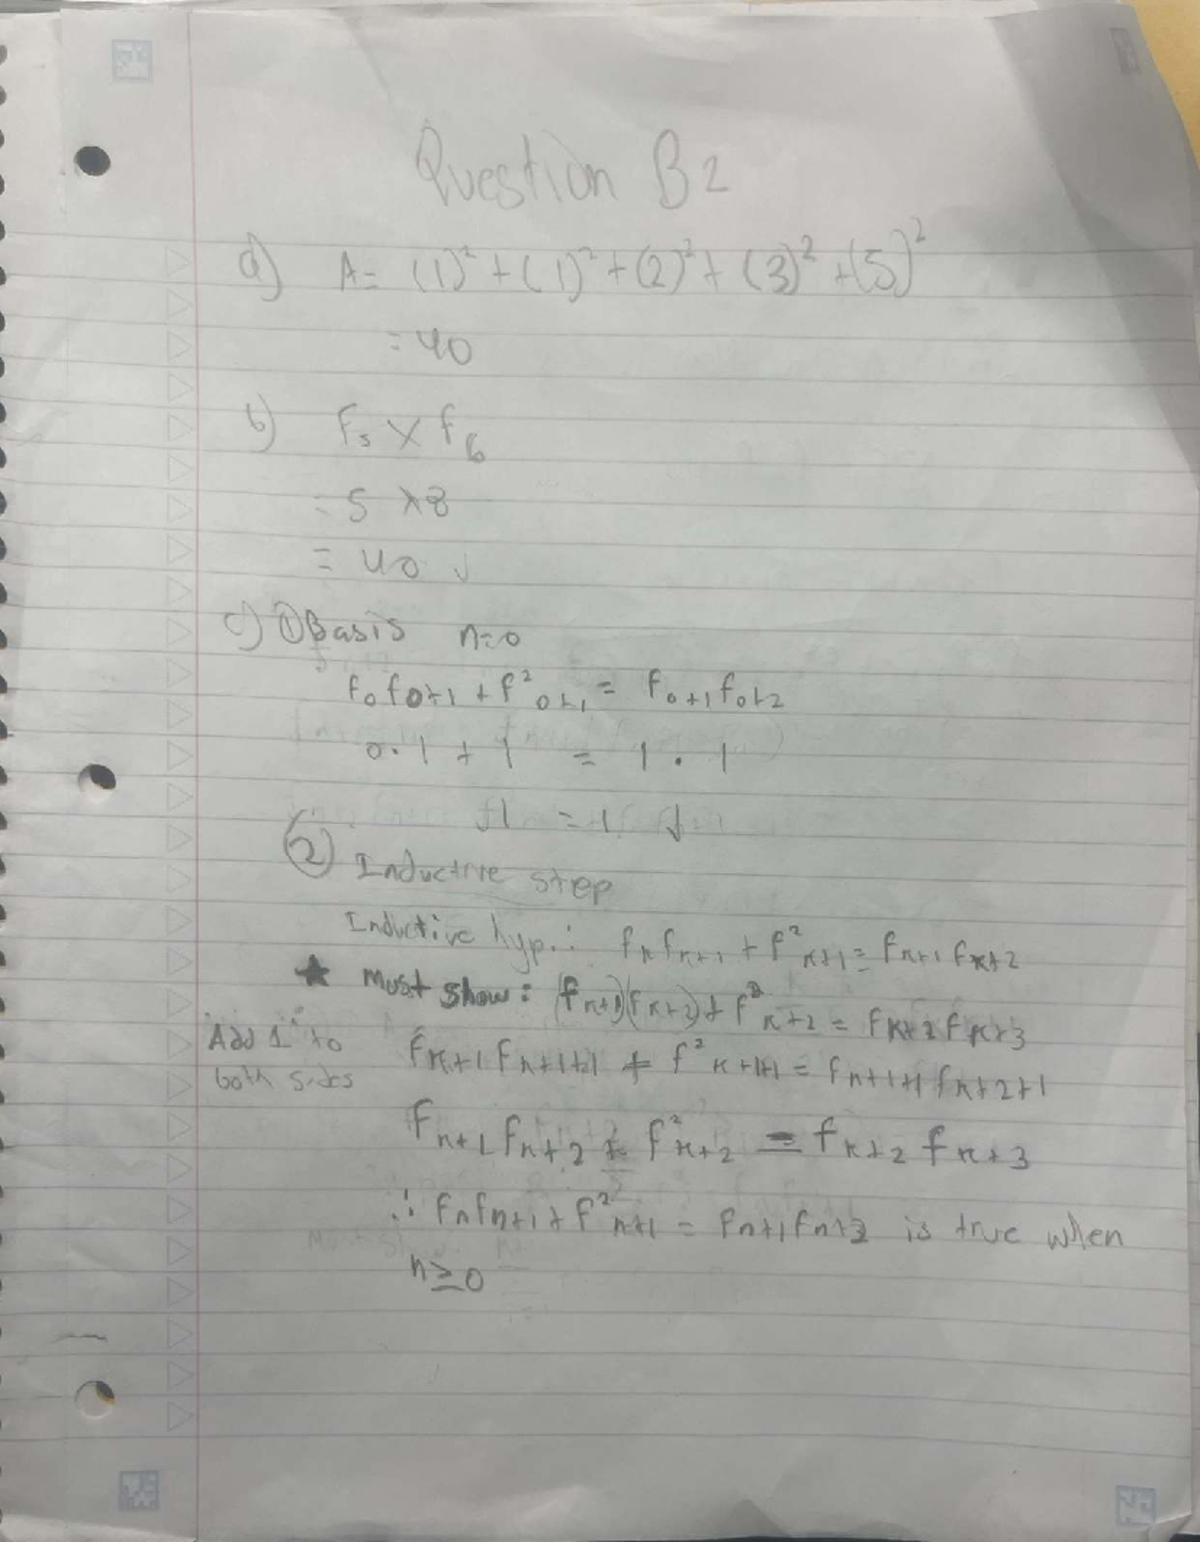 Question B2
a) A = (1)² + (1)² + (2)² + (3)² + (5)²
= 40
b) F₅ × f₆
= 5 × 8
= 40 ✓
c) ① Basis n=0
f₀f₀₊₁ + f²₀₊₁ = f₀₊₁f₀₊₂
0·1 + 1 = 1·1
1 = 1 ✓
② Inductive step
Inductive hyp.: fₖfₖ₊₁ + f²ₖ₊₁ = fₖ₊₁fₖ₊₂
★ Must show: (fₖ₊₁)(fₖ₊₂) + f²ₖ₊₂ = fₖ₊₂fₖ₊₃
Add 1 to both sides
fₖ₊₁fₖ₊₁₊₁ + f²ₖ₊₁₊₁ = fₖ₊₁₊₁fₖ₊₂₊₁
fₖ₊₁fₖ₊₂ + f²ₖ₊₂ = fₖ₊₂fₖ₊₃
∴ fₙfₙ₊₁ + f²ₙ₊₁ = fₙ₊₁fₙ₊₂ is true when
n ≥ 0